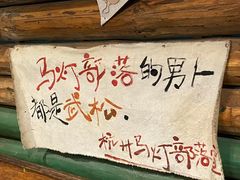 马灯部落的男卜
都是武松.
杭州马灯部落